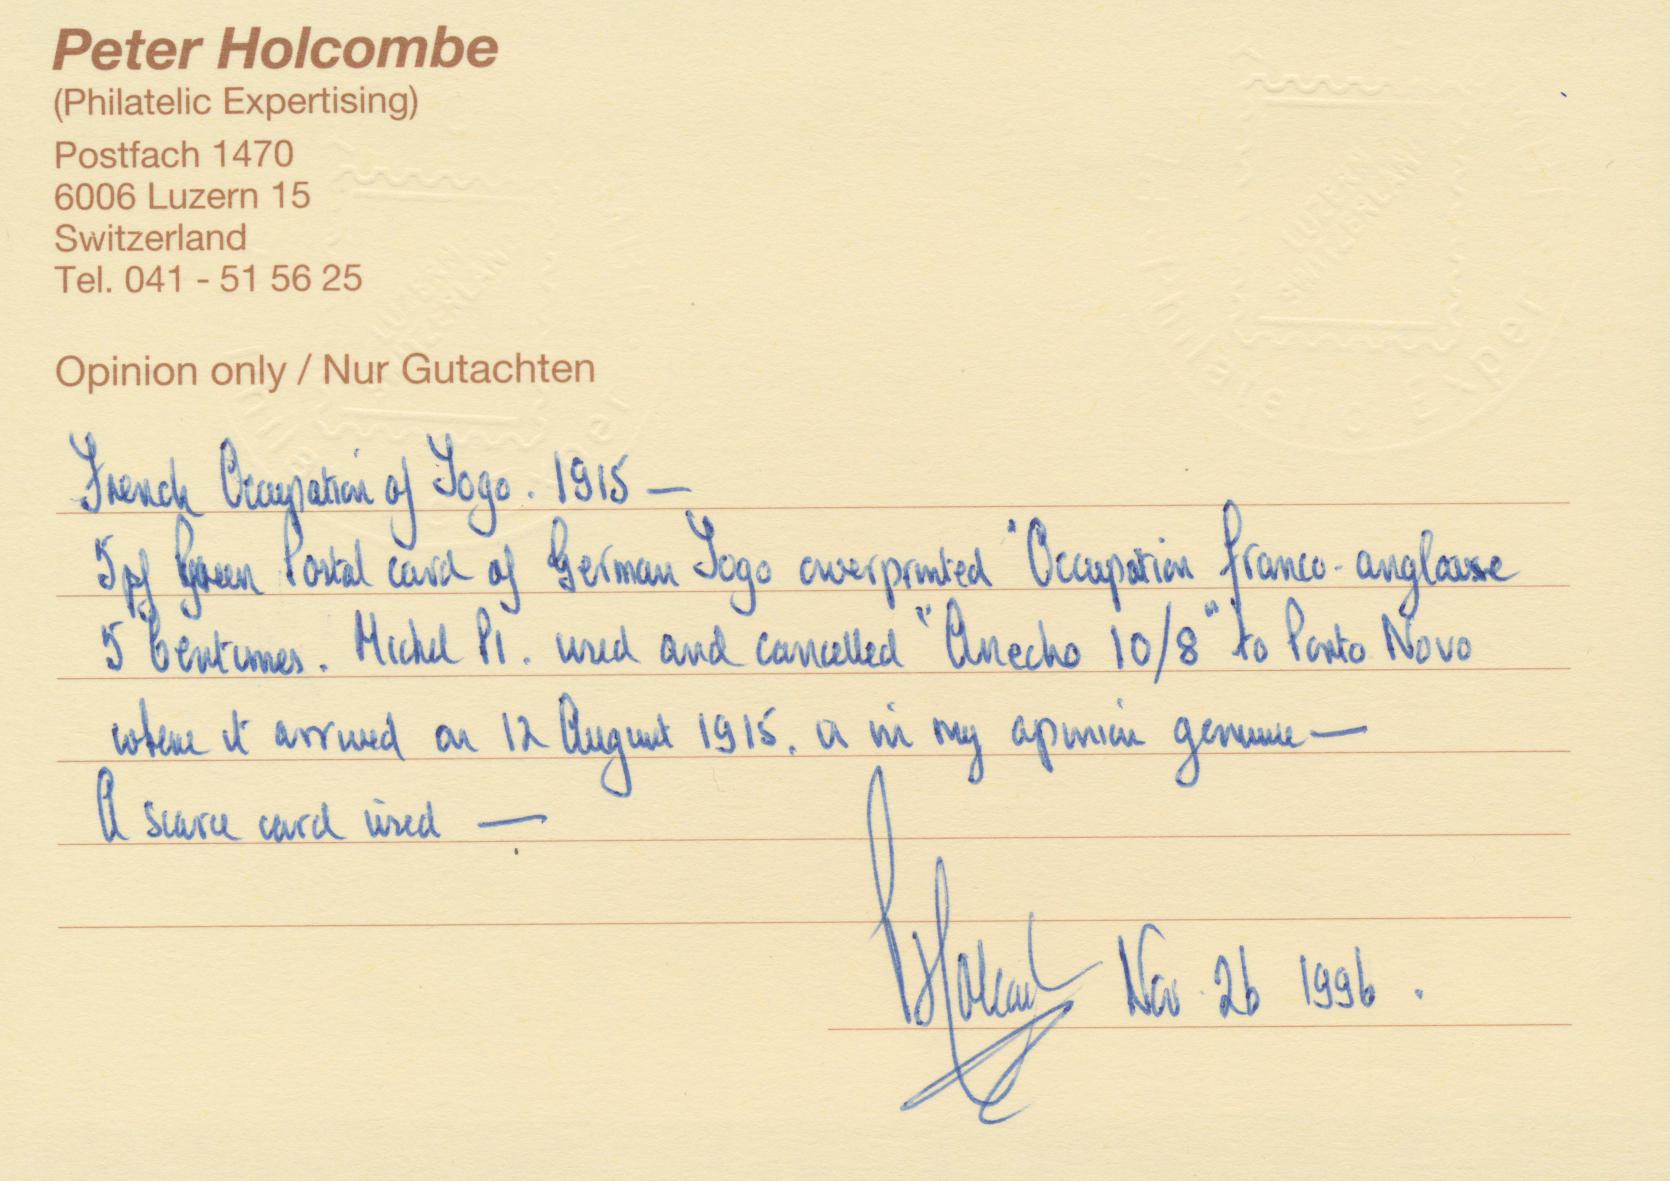 Peter Holcombe
(Philatelic Expertising)
Postfach 1470
6006 Luzern 15
Switzerland
Tel. 041 - 51 56 25
LUZERN
SWITZERLAND
Philatelic Expert
Opinion only / Nur Gutachten
French Occupation of Togo. 1915 —
5pf Green Postal card of German Togo overprinted "Occupation franco-anglaise
5 Centimes. Michel P1. used and cancelled "Anecho 10/8" to Porto Novo
where it arrived on 12 August 1915. is in my opinion genuine —
A scarce card used —
PHolcombe Nov. 26 1996.